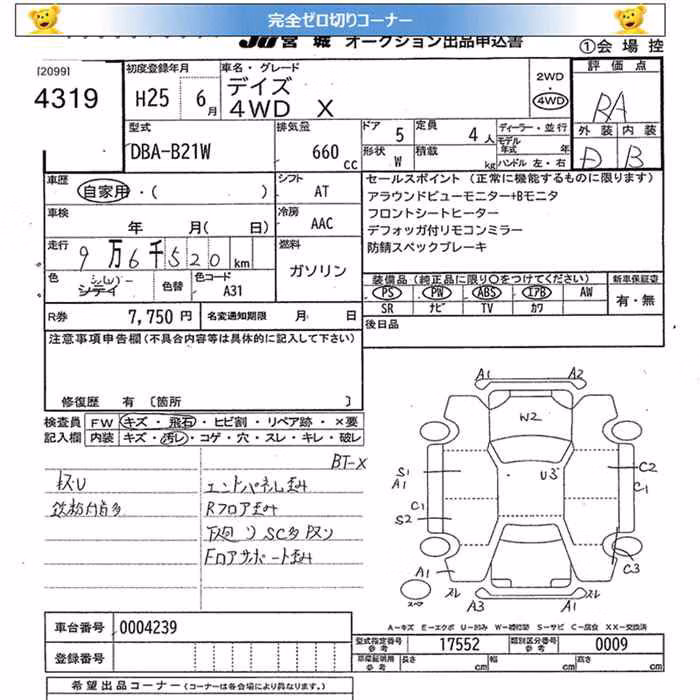 完全ゼロ切りコーナー
JU 宮城 オークション出品申込書
①会場控
[2099]
4319
初度登録年月
H25 6月
車名・グレード
デイズ
4WD X
2WD
4WD
評価点
RA
外装 内装
D B
型式
DBA-B21W
排気量
660 cc
ドア 5
形状 W
定員 4人
積載 kg
ディーラー・並行
モデル年式 年
ハンドル 左・右
車歴
自家用・( )
シフト
AT
車検
年 月( 日)
冷房
AAC
走行
9万6千520 km
燃料
ガソリン
色
シルバー
シテイ
色替
色コード
A31
R券 7,750円
名変通知期限 月 日
セールスポイント (正常に機能するものに限ります)
アラウンドビューモニター+Bモニタ
フロントシートヒーター
デフォッガ付リモコンミラー
防錆スペックブレーキ
装備品(純正品に限り〇をつけてください)
PS PW ABS エアB AW
SR ナビ TV カワ
新車保証書
有・無
後日品
注意事項申告欄(不具合内容等は具体的に記入して下さい)
修復歴 有 [箇所 ]
検査員記入欄
FW キズ・飛石・ヒビ割・リペア跡・×要
内装 キズ・汚レ・コゲ・穴・スレ・キレ・破レ
BT-X
キズU
エンドパネル歪み
Rフロア歪み
下廻りSC多
Fロアサポート歪み
A1 A2
W2
S1
A1
U3
C2
C1
C1
S2
C3
A1
スレ
A3
A1
スレ
スペア
A-キズ E-エクボ U-凹み W-補修跡 S-サビ C-腐食 XX-交換済
車台番号 0004239
登録番号
型式指定番号 参考 17552
類別区分番号 参考 0009
車庫証明用 参考 長さ cm 幅 cm 高さ cm
希望出品コーナー(コーナーは各会場により異なります。)